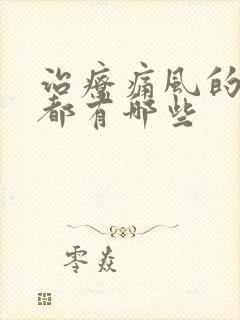 治疗痛风的
都有哪些
零焱